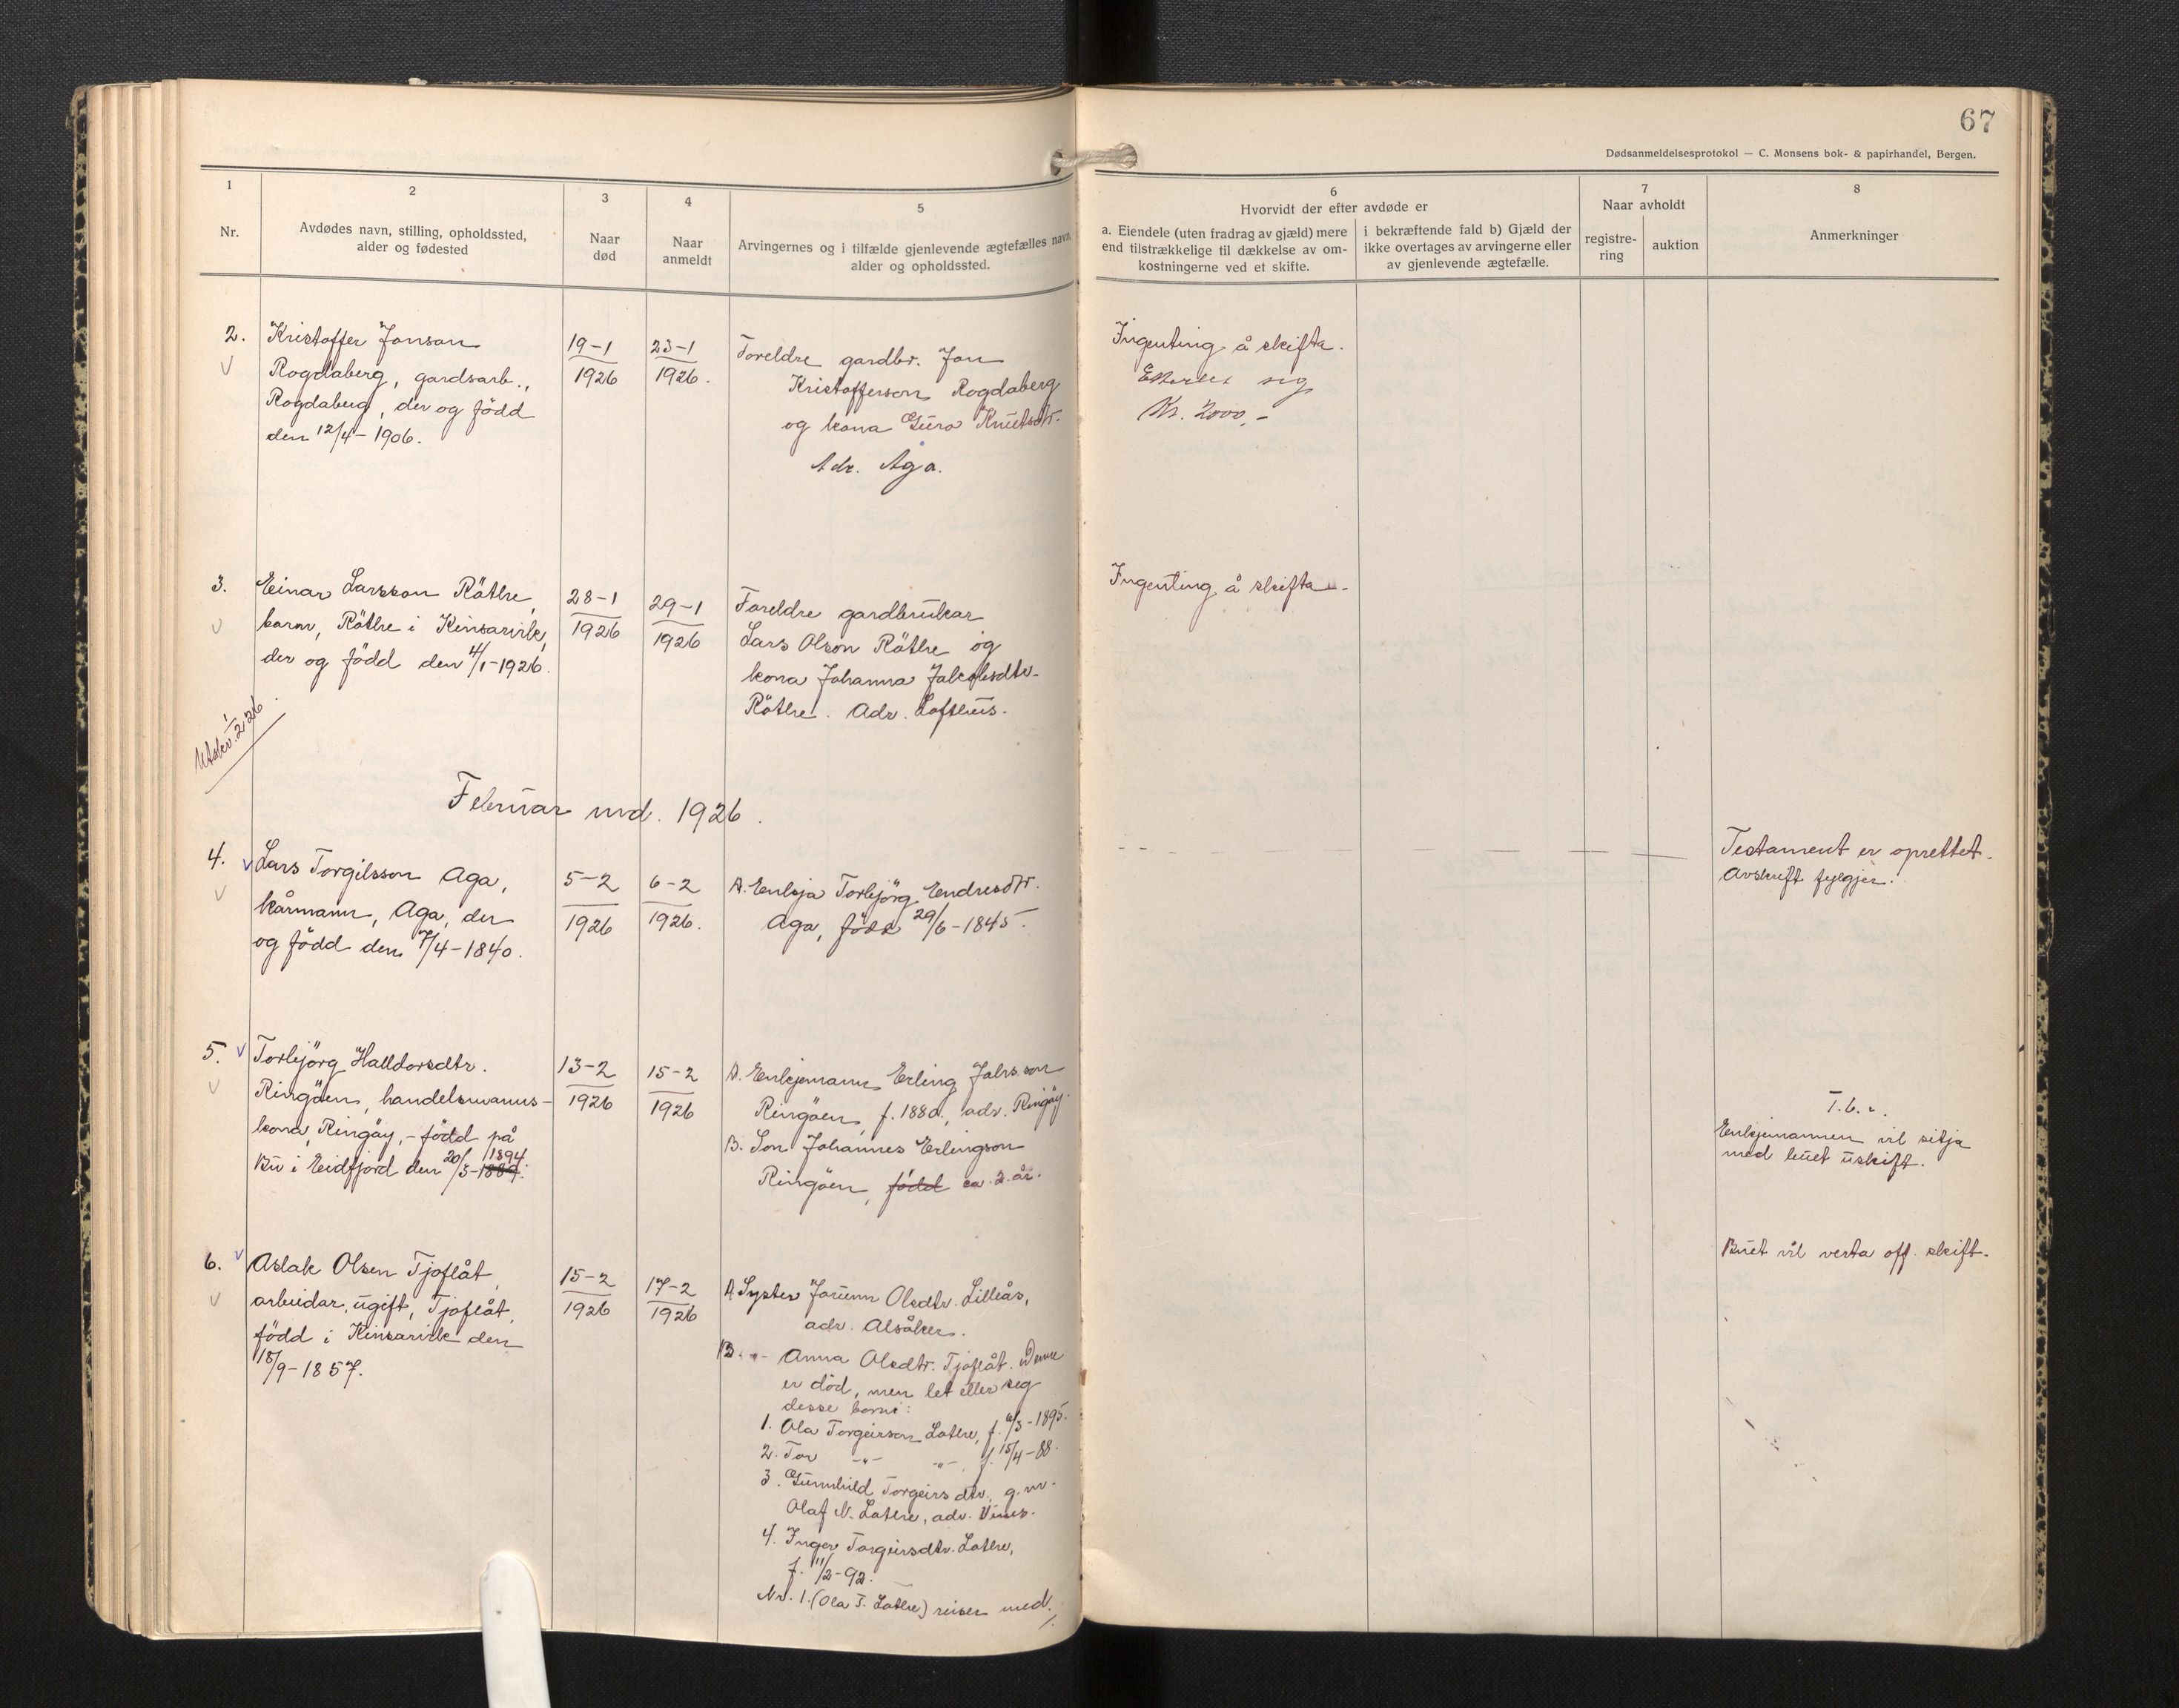 67
Dødsanmeldelsesprotokol — C. Monsens bok- & papirhandel, Bergen.
1
Nr.
2
Avdødes navn, stilling, opholdssted,
alder og fødested
3
Naar
død
4
Naar
anmeldt
5
Arvingernes og i tilfælde gjenlevende ægtefælles navn,
alder og opholdssted.
6
Hvorvidt der efter avdøde er
a. Eiendele (uten fradrag av gjæld) mere
end tilstrækkelige til dækkelse av om-
kostningerne ved et skifte.
i bekræftende fald b) Gjæld der
ikke overtages av arvingerne eller
av gjenlevende ægtefælle.
7
Naar avholdt
registre-
ring
auktion
8
Anmerkninger
2.
Kristoffer Jonson
Rogdaberg, gardsarb.,
Rogdaberg, der og född
den 12/4 - 1906.
19-1
1926
23-1
1926.
Foreldre gardbr. Jon
Kristofferson Rogdaberg
og kona Guro Knutsdtr.
Adr. Aga.
Ingenting å skifta.
seg
Kr. 2000,-
3.
Einar Larsson Röthe,
barn, Röthe i Kinsarvik,
der og född den 4/1-1926.
28-1
1926
29-1
1926
Foreldre gardbrukar
Lars Olson Röthe og
kona Johanna Jakobsdtr.
Röthe. Adr. Lofthus.
Ingenting å skifta.
Utskr. 1/2 26.
Februar md. 1926.
4.
Lars Torgilsson Aga,
kårmann, Aga, der
og född den 7/4-1840.
5-2
1926
6-2
1926.
A. Enkja Torbjörg Endresdtr.
Aga, född 29/6-1845.
Testament er oprettet.
Avskrift fylgjer.
5.
Torbjörg Halldorsdtr.
Ringöen, handelsmanns-
kona, Ringöy, - född på
Bu i Eidfjord den 20/3-1889. 1894.
13-2
1926
15-2
1926
A. Enkjemann Erling Johs.son
Ringöen, f. 1880, adr. Ringöy.
B. Son Johannes Erlingson
Ringöen, född ca. 2 år.
Enkjemannen vil sitja
med buet uskift.
6.
Aslak Olsen Tjoflåt,
arbeidar, ugift, Tjoflåt,
född i Kinsarvik den
18/9-1857.
15-2
1926
17-2
1926
A Syster Jorunn Olsdtr. Lilleås,
adr. Alsåker.
B. -"- Anna Olsdtr. Tjoflåt. Denne
er död, men let etter seg
desse borni:
1. Ola Torgeirson Lothe, f. 6/3-1895.
2. Tor -"- -"- f. 15/4-88.
3. Gunnhild Torgeirsdtr., g.m.
Olaf N. Lothe, adr. Vines.
4. Inger Torgeirsdtr. Lothe,
f. 11/2-92.
Nr. 1. (Ola T. Lothe) reiser med.
Buet vil verta off. skift.